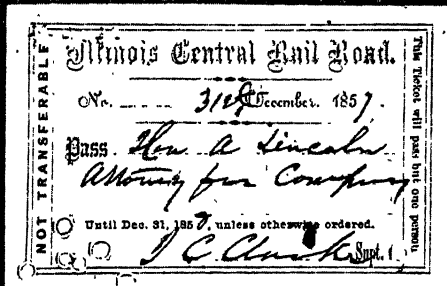 Illinois Central Rail Road.
No. 31st December. 1857.
Pass Hon A Lincoln
Attorney for Company
Until Dec. 31, 1857, unless otherwise ordered.
J C Clarke Supt.
NOT TRANSFERABLE
This Ticket will pass but one person